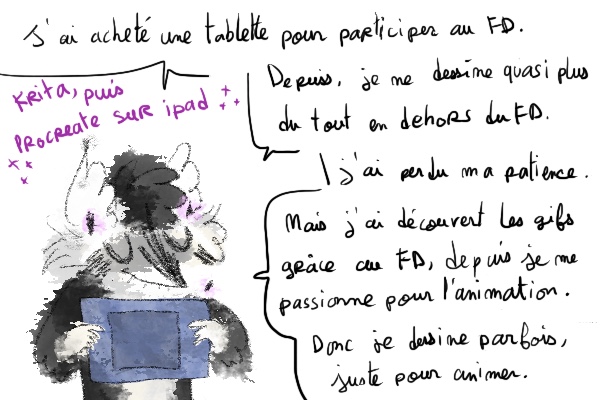 J'ai acheté une tablette pour participer au FD.
Krita, puis
Procreate sur ipad
Depuis, je ne dessine quasi plus
du tout en dehors du FD.
J'ai perdu ma patience.
Mais j'ai découvert les gifs
grâce au FD, depuis je me
passionne pour l'animation.
Donc je dessine parfois,
juste pour animer.